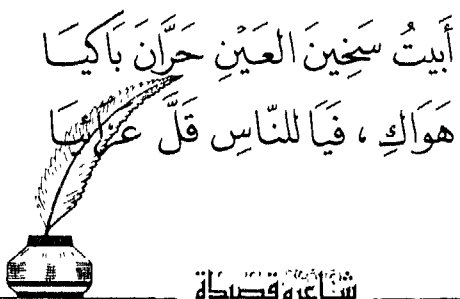 أَبِيتُ سَخِينَ العَيْنِ حَرَّانَ بَاكِيَا
هَوَاكِ ، فَيَا للنّاسِ قَلَّ عَزَائِيَا
شاعر وقصيدة